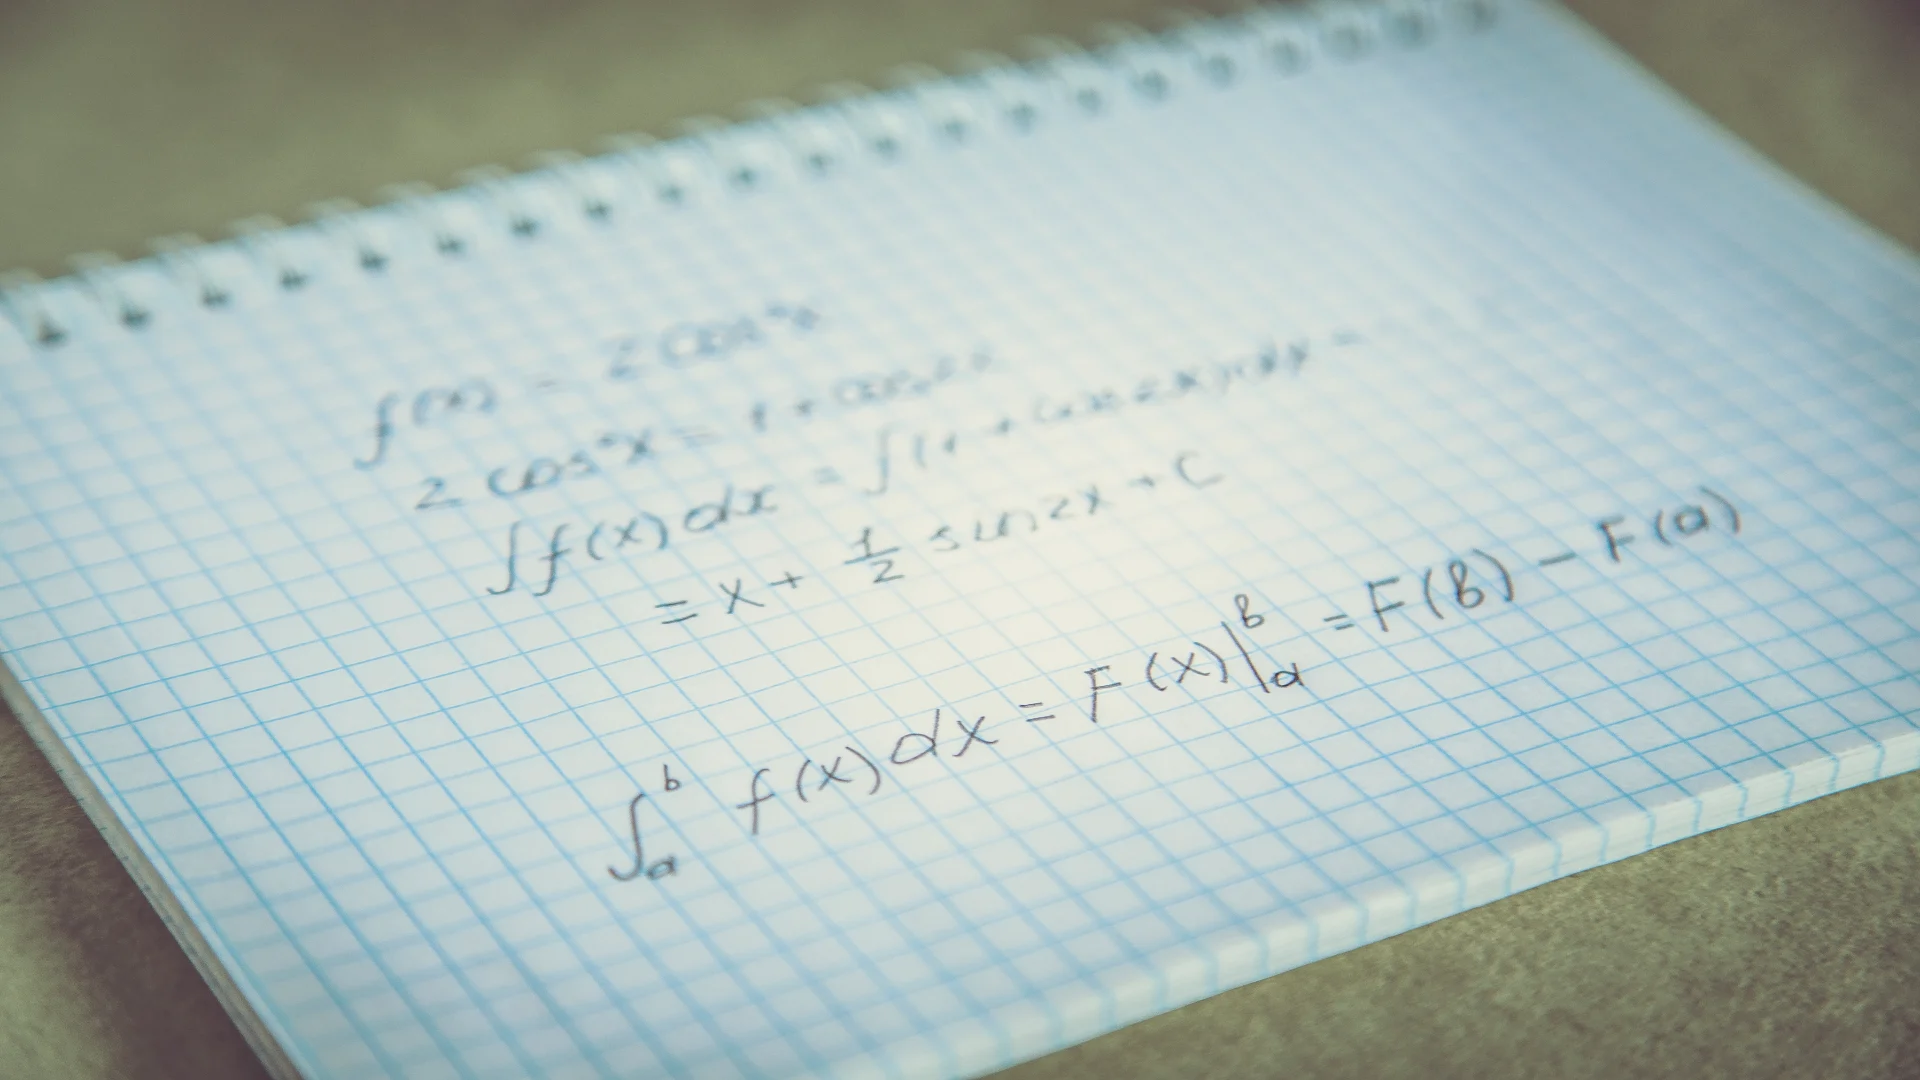 f(x) = 2cos²x
2 cos²x = 1 + cos2x
∫f(x)dx = ∫(1 + cos2x)dx =
= x + 1/2 sin2x + C
∫ₐᵇ f(x)dx = F(x)|ₐᵇ = F(b) - F(a)